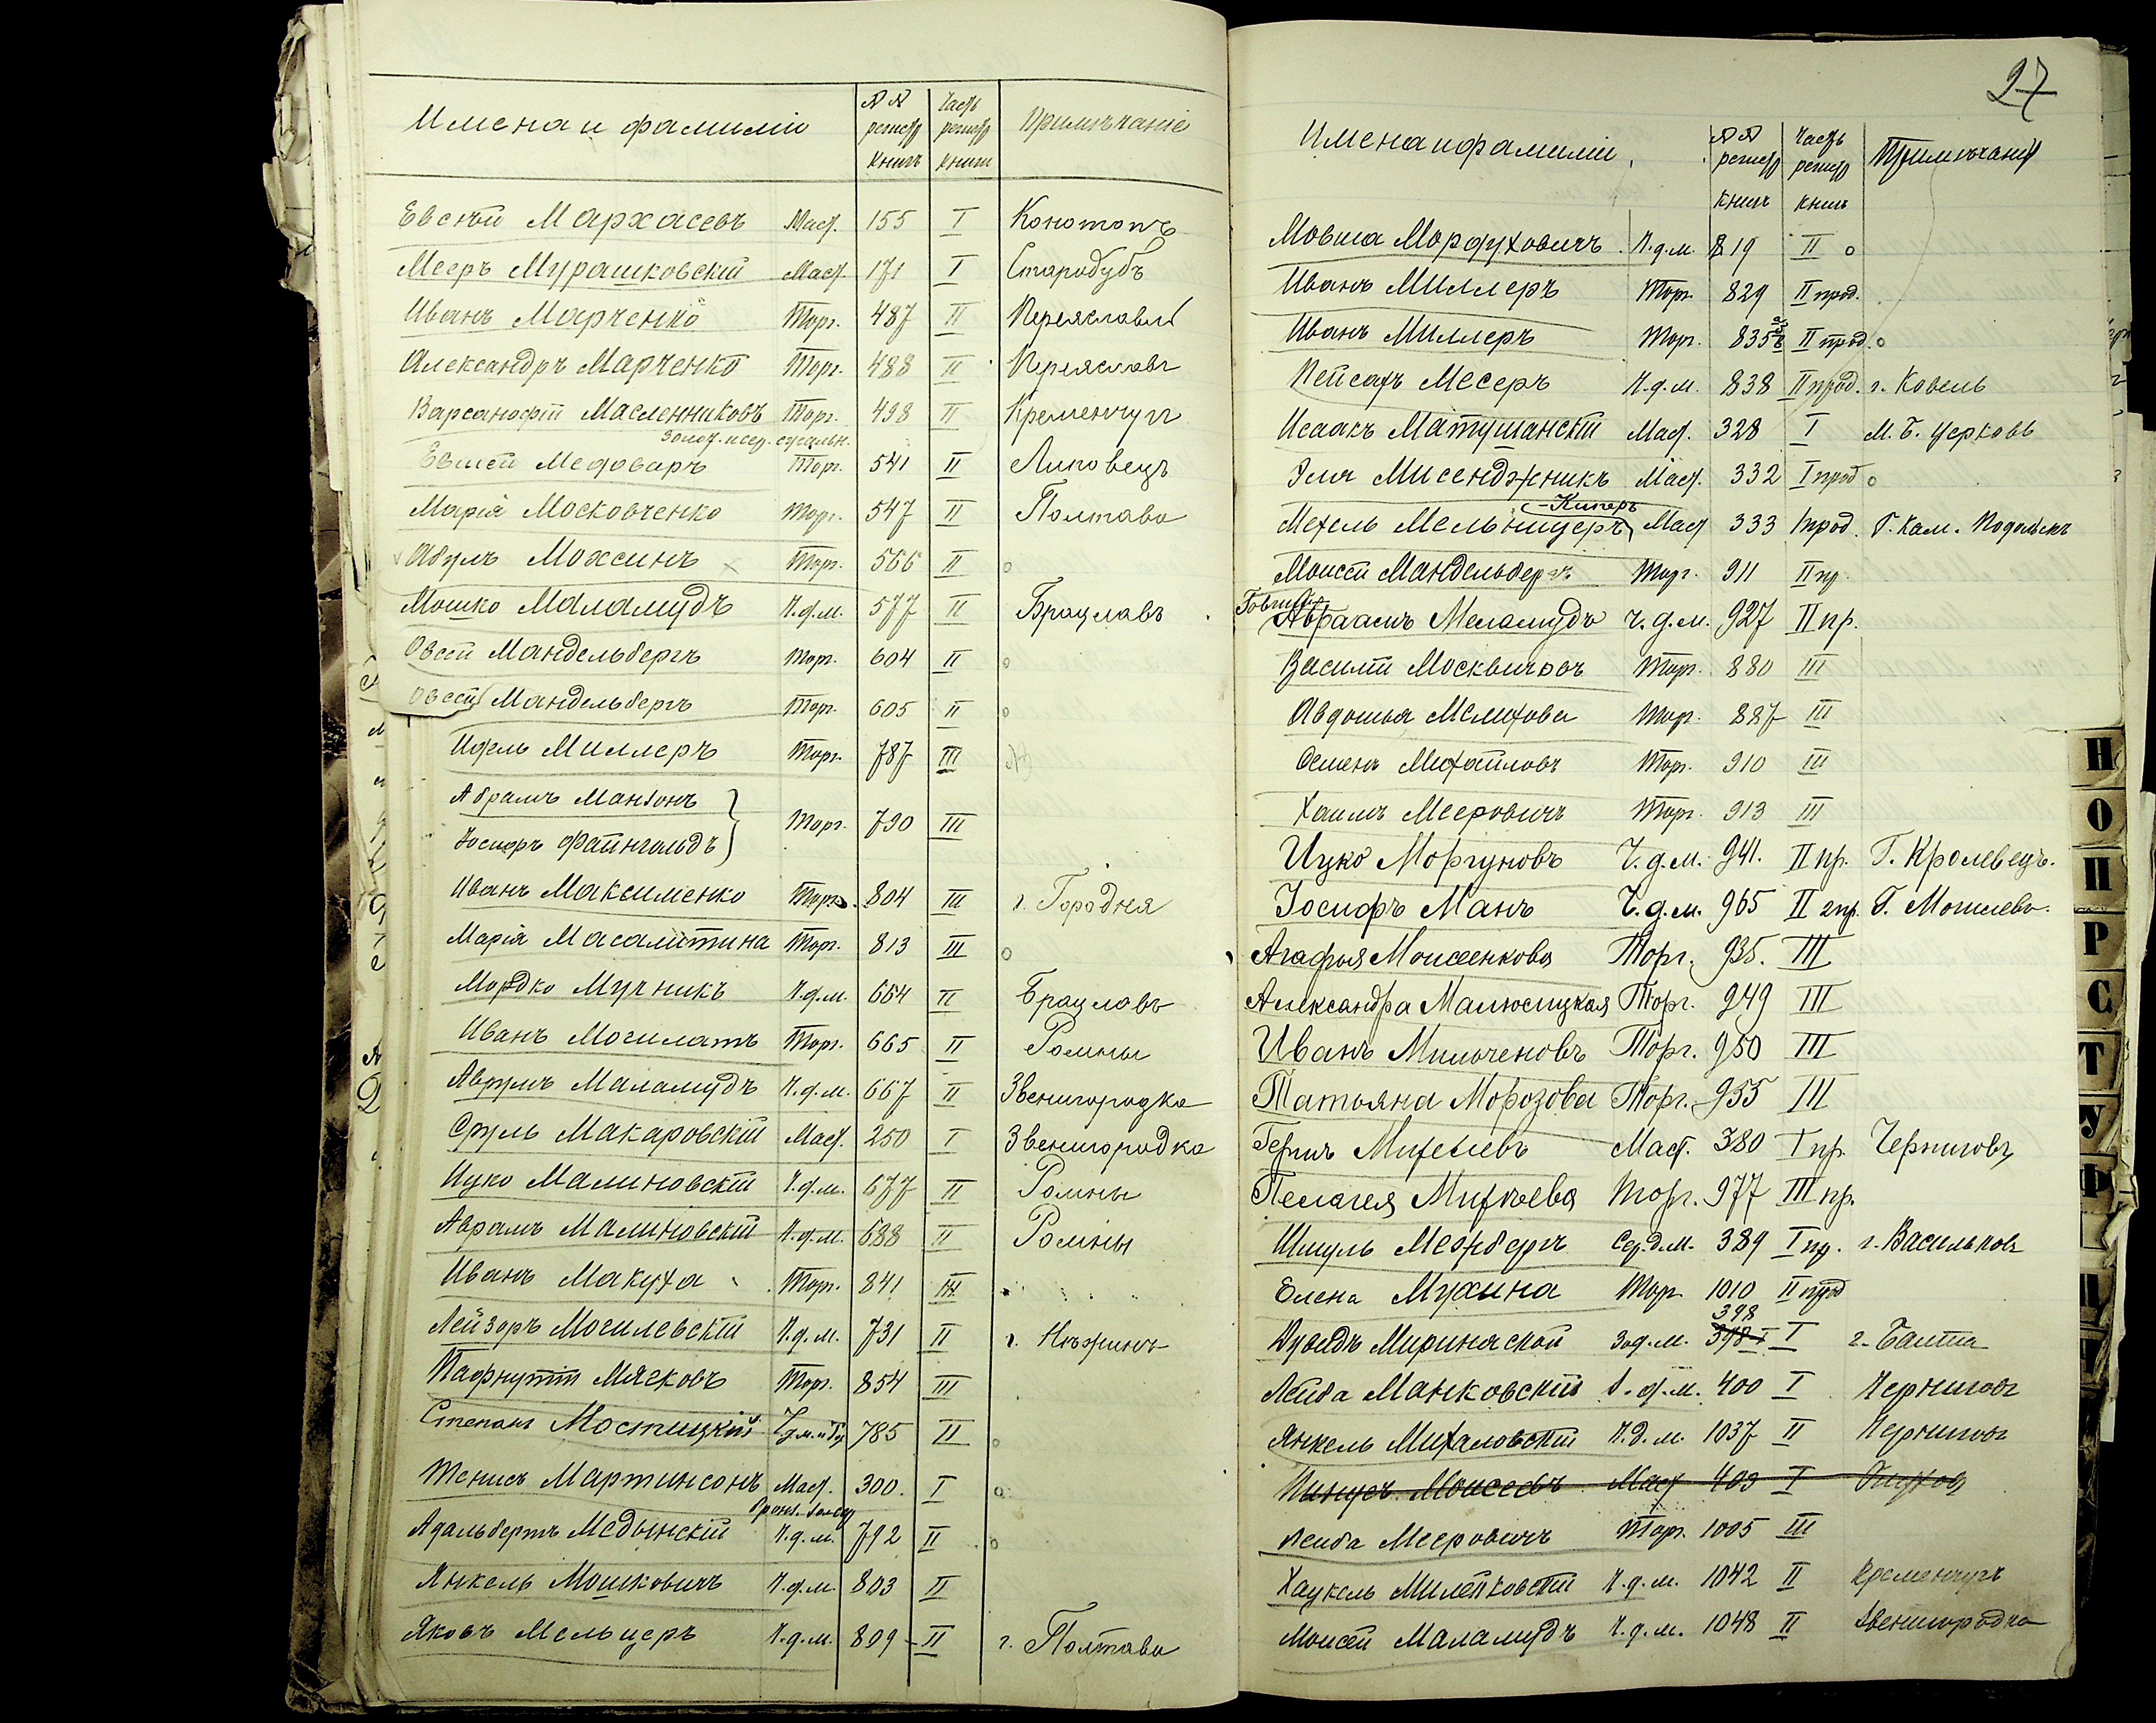 Имена и фамиліи | №№ регистр книгъ | Часть регистр книги | Примѣчаніе
Евсѣй Мархасевъ Маст. 155 I Конотопъ
Мееръ Мурашковскій Маст. 171 I Стародубъ
Иванъ Марченко Торг. 487 II Переяславль
Александръ Марченко Торг. 488 II Переяславъ
Варсанофій Масленниковъ Торг. 498 II Кременчугъ
Евшей Медоваръ Торг. 541 II Липовецъ
Марія Московченко Торг. 547 II Полтава
Абулъ Мохсинъ Торг. 566 II
Мошко Маламудъ Ч.д.м. 577 II Брацлавъ
Овсей Мандельбергъ Торг. 604 II
Овсей Мандельбергъ Торг. 605 II
Идель Миллеръ Торг. 787 III
Абрамъ
Іосифъ Файнгольдъ } Торг. 790 III
Иванъ Максименко Торг. 804 III г. Городня
Марія Масалитина Торг. 813 III
Мордко Мучникъ Ч.д.м. 664 II Брацлавъ
Иванъ Могилатъ Торг. 665 II Ромны
Аврумъ Маламудъ Ч.д.м. 667 II Звенигородка
Сруль Макаровскій Маст. 250 I Звенигородка
Ицко Малиновскій Ч.д.м. 677 II Ромны
Аврамъ Малиновскій Ч.д.м. 688 II Ромны
Иванъ Макуха Торг. 841 III
Лейзоръ Могилевскій Ч.д.м. 731 II г. Нѣжинъ
Пафнутій Мясковъ Торг. 854 III
Степанъ Мостицкій 785 II
Тенисъ Мартинсонъ Маст. 300. I
Адальбертъ Медынскій Ч.д.м. 792 II
Янкель Мошковичъ Ч.д.м. 803 II
Яковъ Мельцеръ Ч.д.м. 809 II г. Полтава
27
Имена и фамиліи | №№ регистр книгъ | Часть регистр книги | Примѣчаніе
Мовша Мордуховичъ Ч.д.м. 819 II
Иванъ Миллеръ Торг. 829 II прод.
Иванъ Миллеръ Торг. 835 II прод.
Пейсахъ Месеръ Ч.д.м. 838 II прод. г. Ковель
Исаакъ Матушанскій Маст. 328 I М. Б. Церковь
Эля Мисенджникъ Маст. 332 I прод
-Киперъ
Мехель Мельницеръ Маст 333 I прод. Г. Кам. Подольскъ
Моисей Мандельбергъ Торг. 911 II пр.
Авраамъ Меламудъ Ч.д.м. 927 II пр.
Василій Москвичовъ Торг. 880 III
Авдотья Мелихова Торг. 887 III
Семенъ Михайловъ Торг. 910 III
Хаимъ Мееровичъ Торг. 913 III
Ицко Моргуновъ Ч.д.м. 941. II пр. Г. Кролевецъ.
Іосифъ Манъ Ч.д.м. 965 II 2пр. Г. Могилевъ.
Агафья Моисеенкова Торг. 935. III
Александра Малюсицкая Торг. 949 III
Иванъ Мильченовъ Торг. 950 III
Татьяна Морозова Торг. 955 III
Гершъ Михелевъ Маст. 380 I пр. Черниговъ
Пелагея Михѣева Торг. 977 III пр.
Шмуль Межбергъ Сер.д.м. 389 I пр. г. Васильковъ
Елена Мухина Торг 1010 II прод
398
Миринаской Зод.м. 398 I I г. Балта
Лейба Манковскій 400 I Черниговъ
Янкель Михаловскій Ч.д.м. 1037 II Черниговъ
Пинусъ Моисеевъ Маст 403 I Глуховъ
Лейба Мееровичъ Торг. 1005 III
Хацкель Милейковскій Ч.д.м. 1042 II Кременчугъ
Моисей Маламудъ Ч.д.м. 1048 II Звенигородка
Н
О
П
Р
С
Т
У
Ф